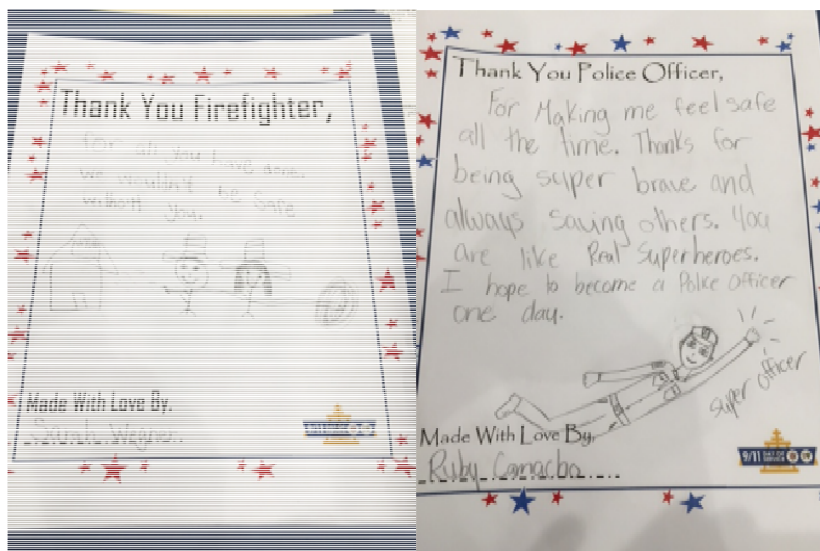 Thank You Firefighter,
for all you have done.
we wouldn't be safe
without you.
Made With Love By,
Sarah Wegner
Thank You Police Officer,
For Making me feel safe
all the time. Thanks for
being super brave and
always saving others. You
are like Real Superheroes.
I hope to become a Police Officer
one day.
super officer
Made With Love By,
Ruby Camacho
9/11 DAY OF SERVICE